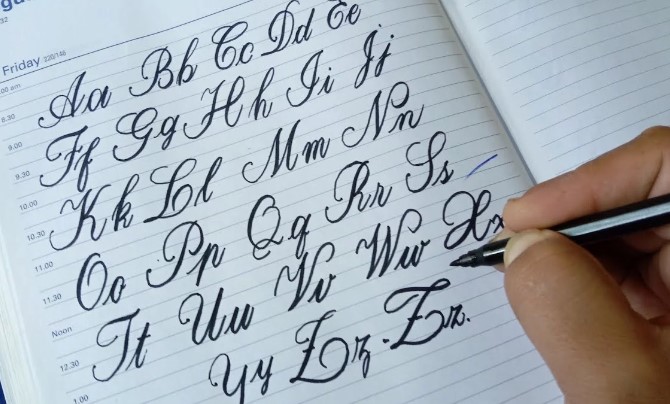 Friday
8.30
Aa Bb Cc Dd Ee
9.00
9.30
Ff Gg Hh Ii Jj
10.00
10.30
Kk Ll Mm Nn
11.00
11.30
Oo Pp Qq Rr Ss
Noon
12.30
Tt Uu Vv Ww Xx
1.00
Yy Zz. Zz.